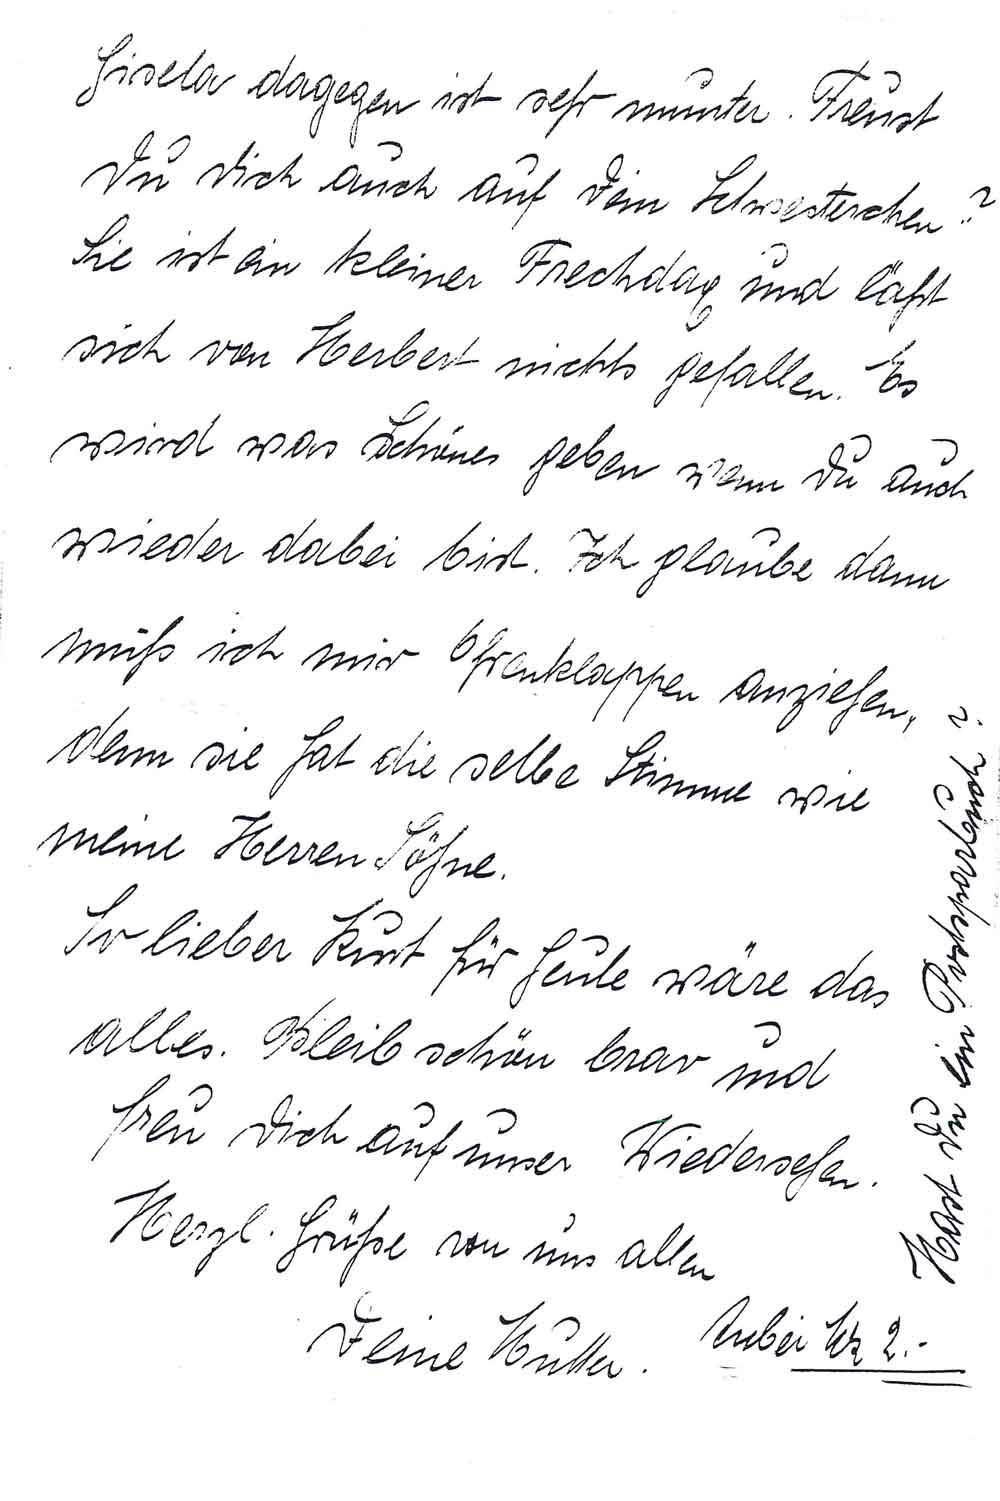 Gisela dagegen ist sehr munter. Freust
Du Dich auch auf Dein Schwesterchen?
Sie ist ein kleiner Frechdax und läßt
sich von Herbert nichts gefallen. Es
wird was Schönes geben wenn Du auch
wieder dabei bist. Ich glaube dann
muß ich mir Ohrenklappen anziehen,
denn sie hat die selbe Stimme wie
meine Herren Söhne.
So lieber Kurt für heute wäre das
alles. Bleib schön brav und
freu Dich auf unser Wiedersehen.
Herzl. Grüße von uns allen
Deine Mutter.
Anbei 2.-
Hast Du ein Postsparbuch?